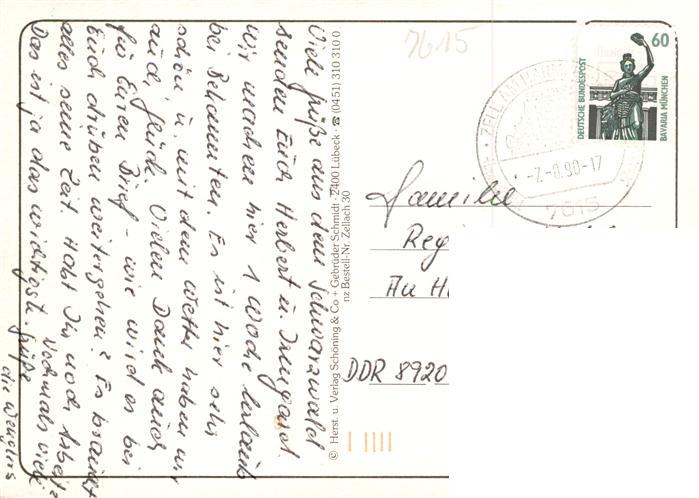 Viele Grüße aus dem Schwarzwald
senden Euch Herbert u. Irmgard.
Wir machen hier 1 Woche Urlaub
bei Bekannten. Es ist hier sehr
schön u. mit dem Wetter haben wir
auch Glück. Vielen Dank auch
für Euren Brief - wie wird es bei
Euch drüben weitergehen? Es braucht
alles seine Zeit. Habt Ihr noch Arbeit?
Das ist ja das wichtigste.
Nochmals viele
Grüße
die
© Herst. u. Verlag Schöning & Co + Gebrüder Schmidt · 2400 Lübeck · ☎ (0451) 310 310 0
nz Bestell-Nr. Zellach 30
7615
60
DEUTSCHE BUNDESPOST
BAVARIA MÜNCHEN
ZELL AM HARM
-7.-8.90-17
7615
Familie
Reg
An H
DDR 8920